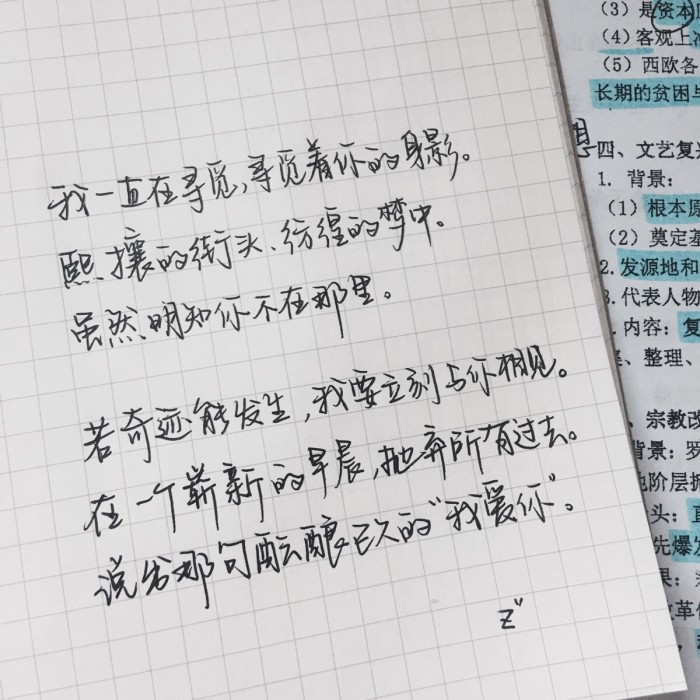 我一直在寻觅,寻觅着你的身影。
熙攘的街头、纷缠的梦中。
虽然明知你不在那里。
若奇迹能发生,我要立刻与你相见。
在一个崭新的早晨,抛弃所有过去。
说出那句酝酿已久的"我爱你"。
z"
(3)是资本
(4)客观上
(5)西欧各
长期的贫困与
四、文艺复兴
1. 背景:
(1)根本原
(2)奠定基
2.发源地和
3.代表人物
内容:复
、整理、
、宗教改
背景:罗
地阶层拥
头:
先爆发
果:
改革